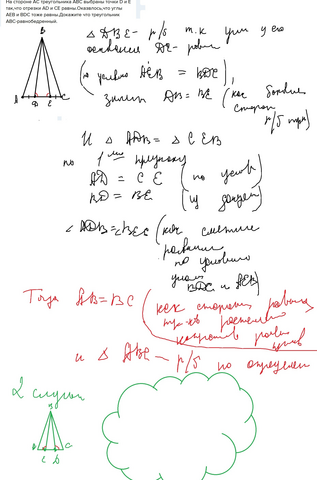 На стороне AC треугольника ABC выбраны точки D и E
так,что отрезки AD и CE равны.Оказалось,что углы
AEB и BDC тоже равны.Докажите что треугольник
ABC-равнобедренный.
B
A D E C
△ DBE - р/б т.к. углы у его
основания DE - равны
(по условию AEB = BDC),
значит DB = BE (как боковые
стороны
р/б тр)
И △ ADB = △ CEB
по 1 признаку
AD = CE (по услов)
BD = BE
∠ ADB = ∠ BEC (как смежные
равными
по условию
углам
BDC и AEB)
Тогда AB = BC (как стороны равных
тр-ов
напротив равных
углов
и △ ABC - р/б по определен
2 случай
B
A E D C